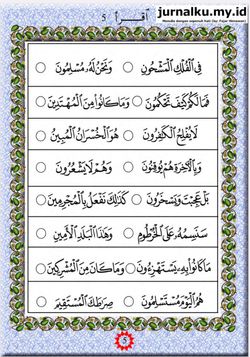 jurnalku.my.id
اقرأ 5
فِي الْفُلْكِ الْمَشْحُونِ ○ وَنَحْنُ لَهُ مُسْلِمُونَ ○
فَمَا لَكُمْ كَيْفَ تَحْكُمُونَ ○ وَمَا كَانُوا مُهْتَدِينَ ○
لَا يُفْلِحُ الْكَافِرُونَ ○ هُوَ الْخُسْرَانُ الْمُبِينُ ○
وَبِالْآخِرَةِ هُمْ يُوقِنُونَ ○ وَهُمْ لَا يَشْعُرُونَ ○
بَلْ عَجِبْتَ وَيَسْخَرُونَ ○ كَذَلِكَ نَفْعَلُ بِالْمُجْرِمِينَ ○
سَنَسِمُهُ عَلَى الْخُرْطُومِ ○ وَهَذَا الْبَلَدِ الْأَمِينِ ○
مَا كَانُوا بِهِ يَسْتَهْزِءُونَ ○ وَمَا كَانَ مِنَ الْمُشْرِكِينَ ○
هُمُ الْيَوْمَ مُسْتَسْلِمُونَ ○ صِرَاطَكَ الْمُسْتَقِيمَ ○
5